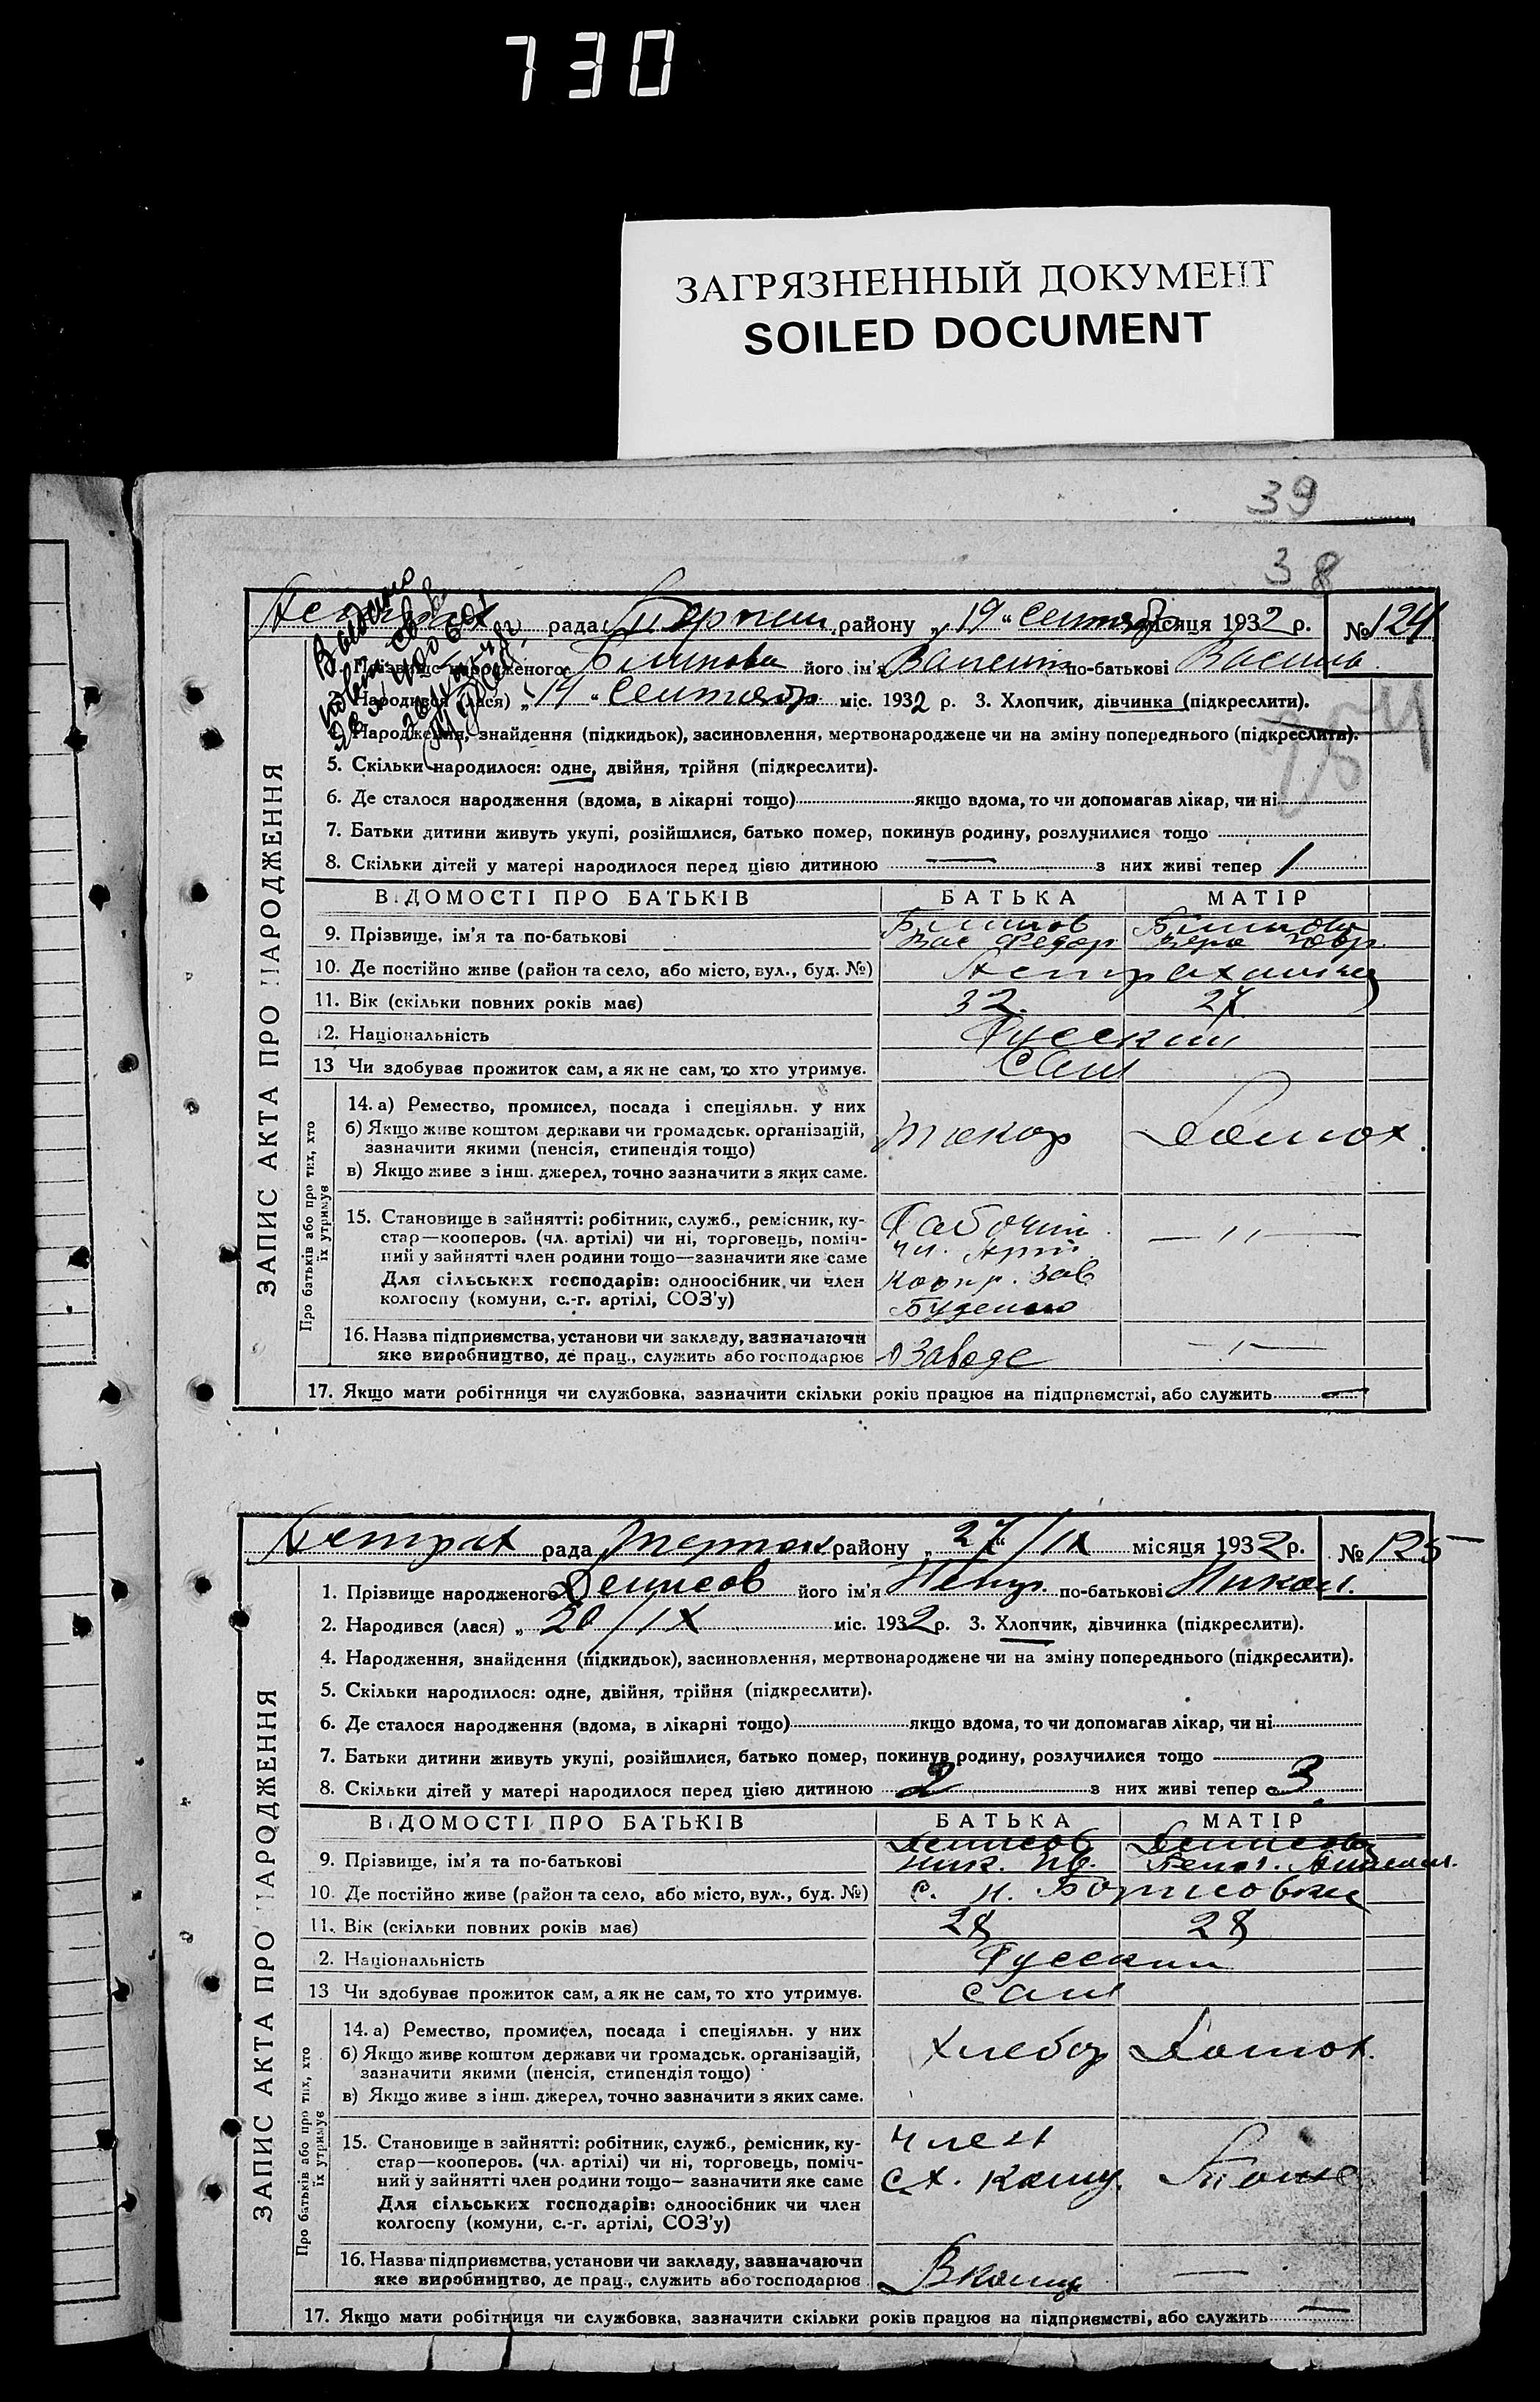 730
ЗАГРЯЗНЕННЫЙ ДОКУМЕНТ
SOILED DOCUMENT
39
38
рада району „19“ сентября місяця 1932 р. № 124
Прізвище народженого його ім'я Валент по-батькові Василь
Народився (лася) „14“ Сентябр міс. 1932 р. 3. Хлопчик, дівчинка (підкреслити).
4. Народження, знайдення (підкидьок), засиновлення, мертвонароджене чи на зміну попереднього (підкреслити).
5. Скільки народилося: одне, двійня, трійня (підкреслити).
6. Де сталося народження (вдома, в лікарні тощо) якщо вдома, то чи допомагав лікар, чи ні
7. Батьки дитини живуть укупі, розійшлися, батько помер, покинув родину, розлучилися тощо
8. Скільки дітей у матері народилося перед цією дитиною — з них живі тепер 1
ВІДОМОСТІ ПРО БАТЬКІВ БАТЬКА МАТІР
9. Прізвище, ім'я та по-батькові Вас Федор Вера
10. Де постійно живе (район та село, або місто, вул., буд. №)
11. Вік (скільки повних років має) 32 27
12. Національність Русские
13 Чи здобуває прожиток сам, а як не сам, то хто утримує. Сам
14. а) Ремество, промисел, посада і спеціяльн. у них
б) Якщо живе коштом держави чи громадськ. організацій,
зазначити якими (пенсія, стипендія тощо)
в) Якщо живе з інш. джерел, точно зазначити з яких саме.
токар Домох.
15. Становище в зайнятті: робітник, служб., ремісник, ку-
стар—кооперов. (чл. артілі) чи ні, торговець, поміч-
ний у зайнятті член родини тощо—зазначити яке саме
Для сільських господарів: одноосібник чи член
колгоспу (комуни, с.-г. артілі, СОЗ'у)
Рабочий — 〃 —
чл. Арт.
зав
16. Назва підприємства, установи чи закладу, зазначаючи
яке виробництво, де прац., служить або господарює
Заводе — 〃 —
17. Якщо мати робітниця чи службовка, зазначити скільки років працює на підприємстві, або служить —
ЗАПИС АКТА ПРО НАРОДЖЕННЯ
Про батьків або про тих, хто
їх утримує
рада району „27“/IX місяця 1932 р. № 125
1. Прізвище народженого Денисов його ім'я Петр. по-батькові Никол.
2. Народився (лася) „20/IX міс. 1932 р. 3. Хлопчик, дівчинка (підкреслити).
4. Народження, знайдення (підкидьок), засиновлення, мертвонароджене чи на зміну попереднього (підкреслити).
5. Скільки народилося: одне, двійня, трійня (підкреслити).
6. Де сталося народження (вдома, в лікарні тощо) якщо вдома, то чи допомагав лікар, чи ні
7. Батьки дитини живуть укупі, розійшлися, батько помер, покинув родину, розлучилися тощо
8. Скільки дітей у матері народилося перед цією дитиною 2 з них живі тепер 3
ВІДОМОСТІ ПРО БАТЬКІВ БАТЬКА МАТІР
Денисов Денисова
9. Прізвище, ім'я та по-батькові Ник. Ив.
10. Де постійно живе (район та село, або місто, вул., буд. №) с. Н. Борисовка
11. Вік (скільки повних років має) 28 28
2. Національність Русские
13 Чи здобуває прожиток сам, а як не сам, то хто утримує. сам
14. а) Ремество, промисел, посада і спеціяльн. у них
б) Якщо живе коштом держави чи громадськ. організацій,
зазначити якими (пенсія, стипендія тощо)
в) Якщо живе з інш. джерел, точно зазначити з яких саме.
Хлебор Домох.
15. Становище в зайнятті: робітник, служб., ремісник, ку-
стар—кооперов. (чл. артілі) чи ні, торговець, поміч-
ний у зайнятті член родини тощо— зазначити яке саме
Для сільських господарів: одноосібник чи член
колгоспу (комуни, с.-г. артілі, СОЗ'у)
член
сх. Тоже
16. Назва підприємства, установи чи закладу, зазначаючи
яке виробництво, де прац., служить або господарює
—
17. Якщо мати робітниця чи службовка, зазначити скільки років працює на підприємстві, або служить —
ЗАПИС АКТА ПРО НАРОДЖЕННЯ
Про батьків або про тих, хто
їх утримує